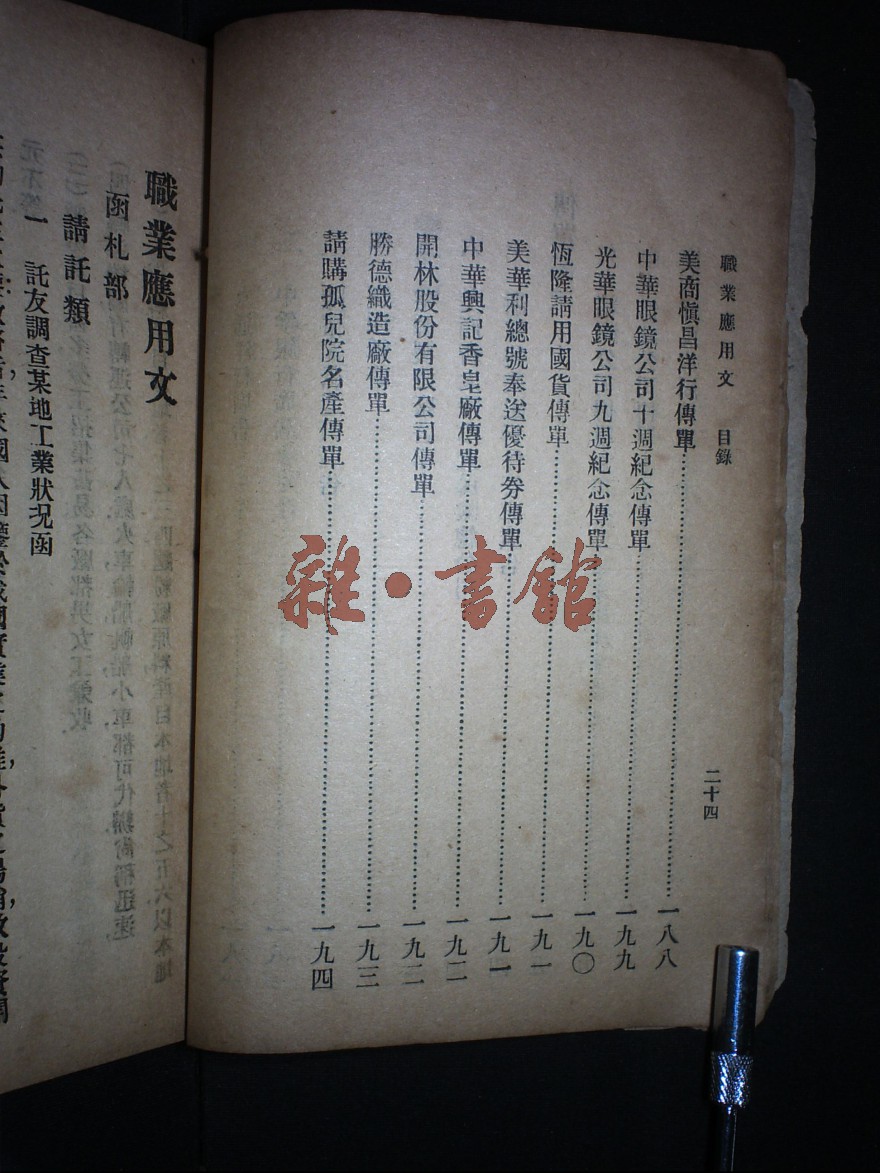 職業應用文 目錄
二十四
美商愼昌洋行傳單 一八八
中華眼鏡公司十週紀念傳單 一九九
光華眼鏡公司九週紀念傳單 一九〇
恆隆請用國貨傳單 一九一
美華利總號奉送優待券傳單 一九一
中華興記香皇廠傳單 一九二
開林股份有限公司傳單 一九二
勝德織造廠傳單 一九三
請購孤兒院名產傳單 一九四
雜·書館
職業應用文
函札部
請託類
一 託友調查某地工業狀況函